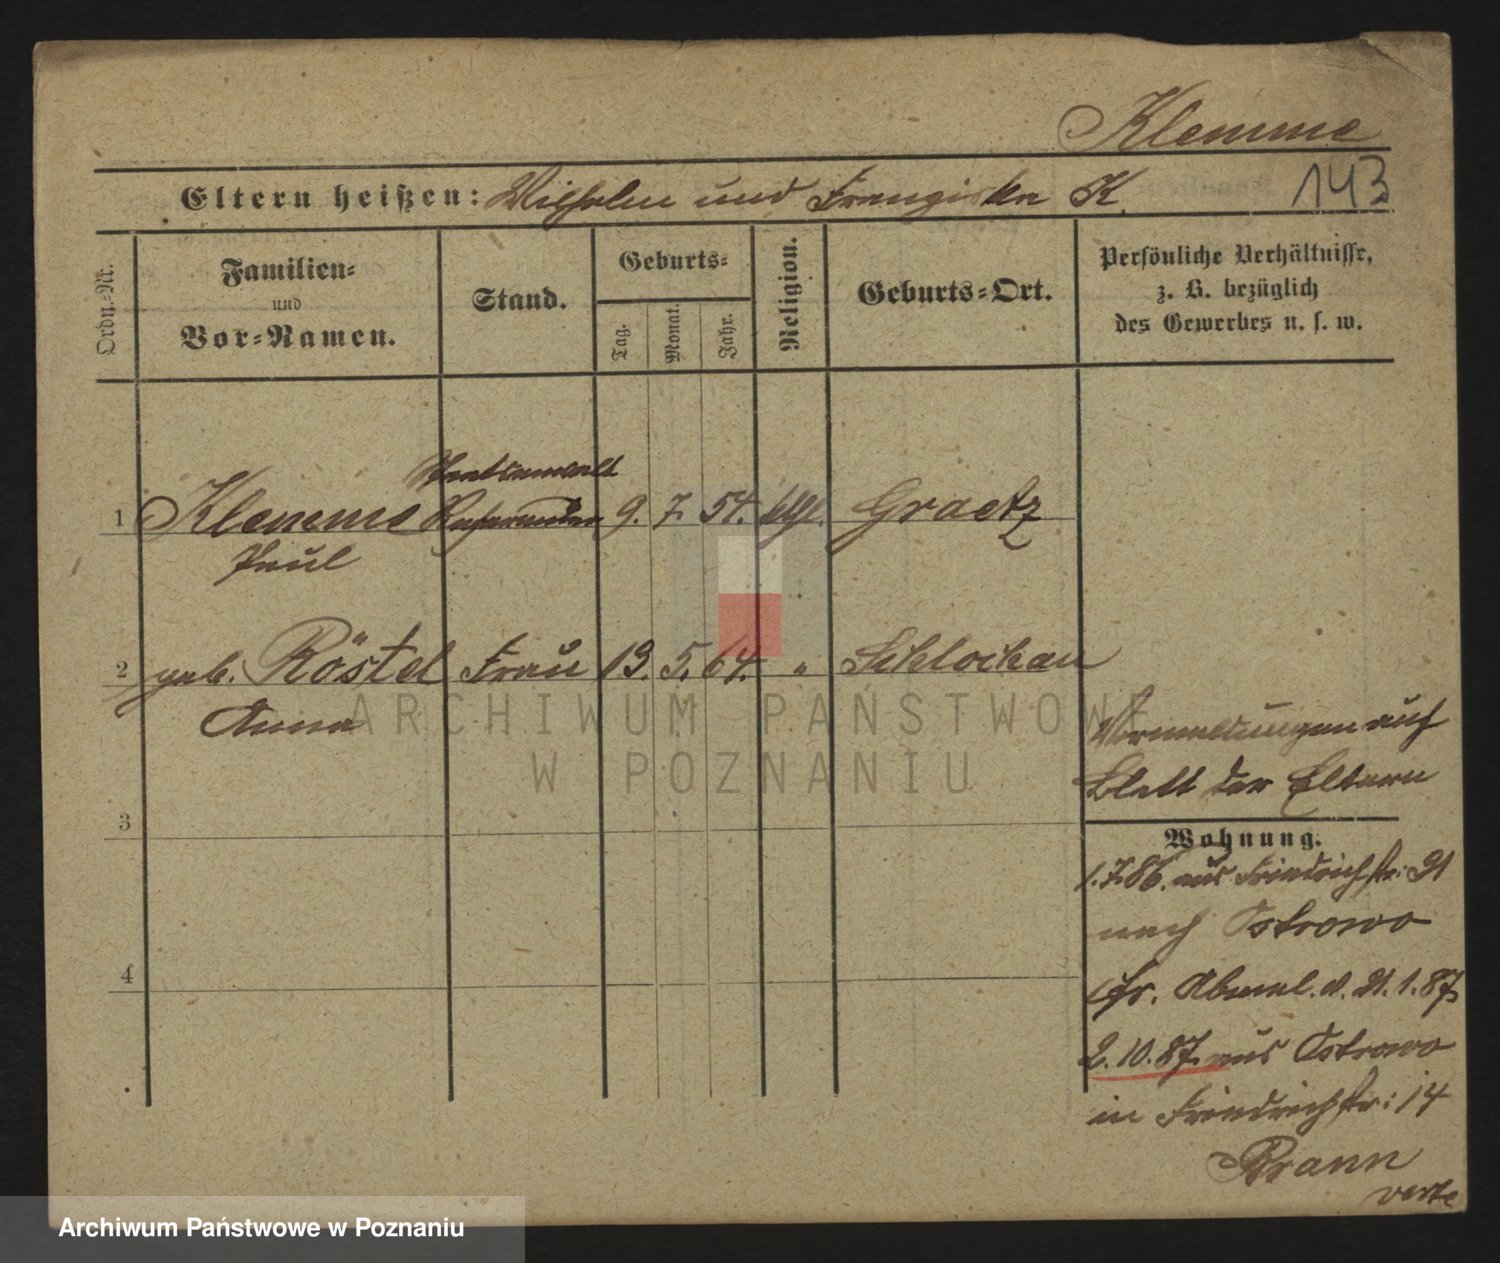 Klemme
143
Eltern heißen: Wilhelm und Franziska K.
Ordn.-Nr.
Familien-
und
Vor-Namen.
Stand.
Geburts-
Tag.
Monat.
Jahr.
Religion.
Geburts-Ort.
Persönliche Verhältnisse,
z. B. bezüglich
des Gewerbes u. s. w.
Staatsanwalt
1 Klemme Referendar 9. 7. 54. Graetz
Paul
2 geb. Röstel Frau 19. 5. 64. " Schlochau
Anna
ARCHIWUM PAŃSTWOWE
W POZNANIU
Vormeldungen auf
Blatt der Eltern
3
Wohnung.
1.7.86. aus Friedrichstr: 21
nach Ostrowo
4
Abmel. v. 21.1.87.
2.10.87. aus Ostrowo
in Friedrichstr: 14
Brann
verte
Archiwum Państwowe w Poznaniu